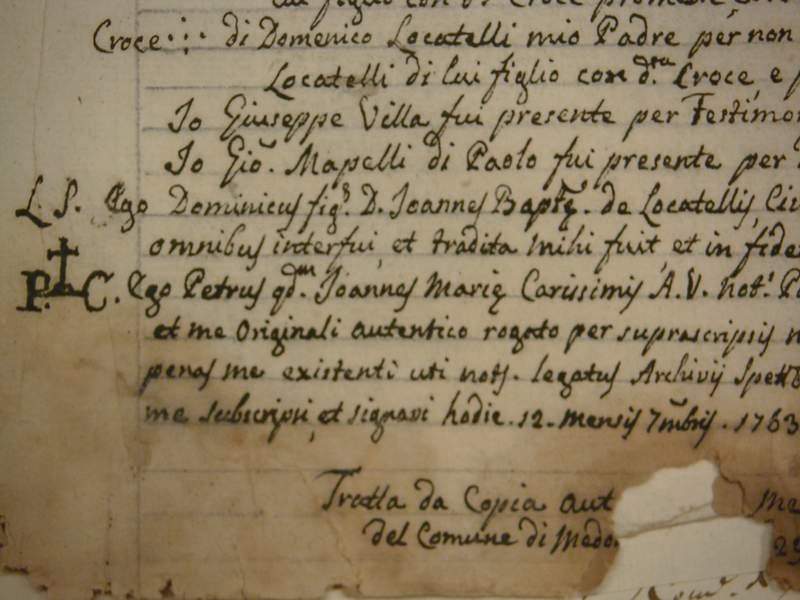 lui figlio con d.ª Croce promette
Croce di Domenico Locatelli mio Padre per non
Locatelli di lui figlio con d.ta Croce, e p
Io Giuseppe Villa fui presente per Testimon
Io Gio. Mapelli di Paolo fui presente per
L. S. Ego Dominicus fig.s D. Joannes Baptę. de Locatellis Civ
omnibus interfui, et tradita mihi fuit, et in fide
P. C. Ego Petrus qdm. Joannes Marię Carissimis A. V. Not.s P
et me Originali autentico rogato per suprascriptis n
penes me existenti uti nots. legatus Archivii Spett
me subscripsi, et signavi hodie. 12. mensis 7mbris. 1763
Tratta da Copia aut Me
del Comune di Medo. 29